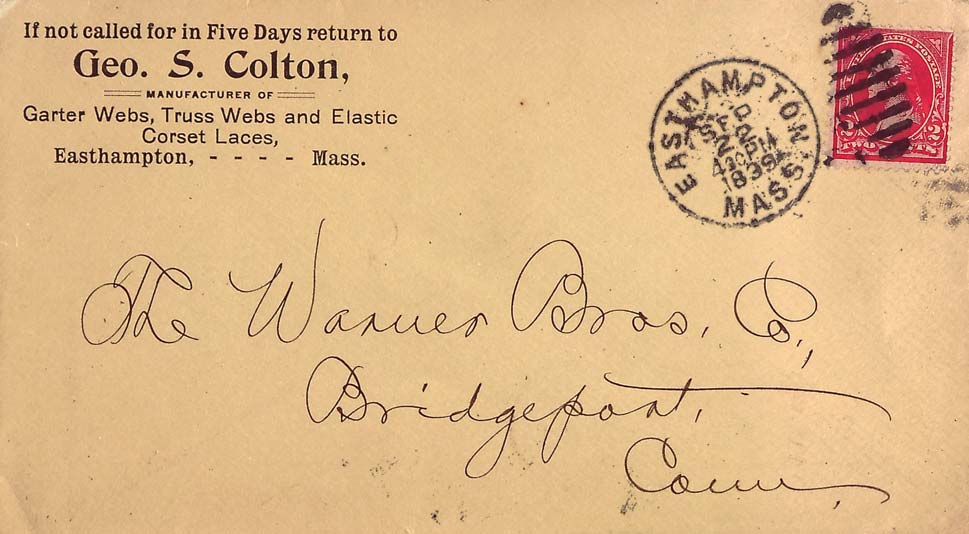 If not called for in Five Days return to
Geo. S. Colton,
MANUFACTURER OF
Garter Webs, Truss Webs and Elastic
Corset Laces,
Easthampton, - - - - Mass.
EASTHAMPTON
MASS.
The Warner Bros. Co.,
Bridgeport,
Conn,